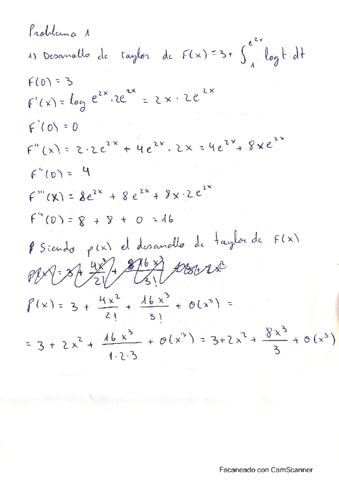 Problema 1
1) Desarrollo de Taylor de F(x) = 3 + ∫₁^(e^(2x)) log t dt
F(0) = 3
F'(x) = log e^(2x) · 2e^(2x) = 2x · 2e^(2x)
F'(0) = 0
F''(x) = 2·2e^(2x) + 4e^(2x) · 2x = 4e^(2x) + 8xe^(2x)
F''(0) = 4
F'''(x) = 8e^(2x) + 8e^(2x) + 8x·2e^(2x)
F'''(0) = 8 + 8 + 0 = 16
Siendo p(x) el desarrollo de taylor de F(x)
P(x) = 3 + 4x²/2! + 16x³/3! + o(x³) =
= 3 + 2x² + 16x³/1·2·3 + o(x³) = 3+2x² + 8x³/3 + o(x³)
Escaneado con CamScanner